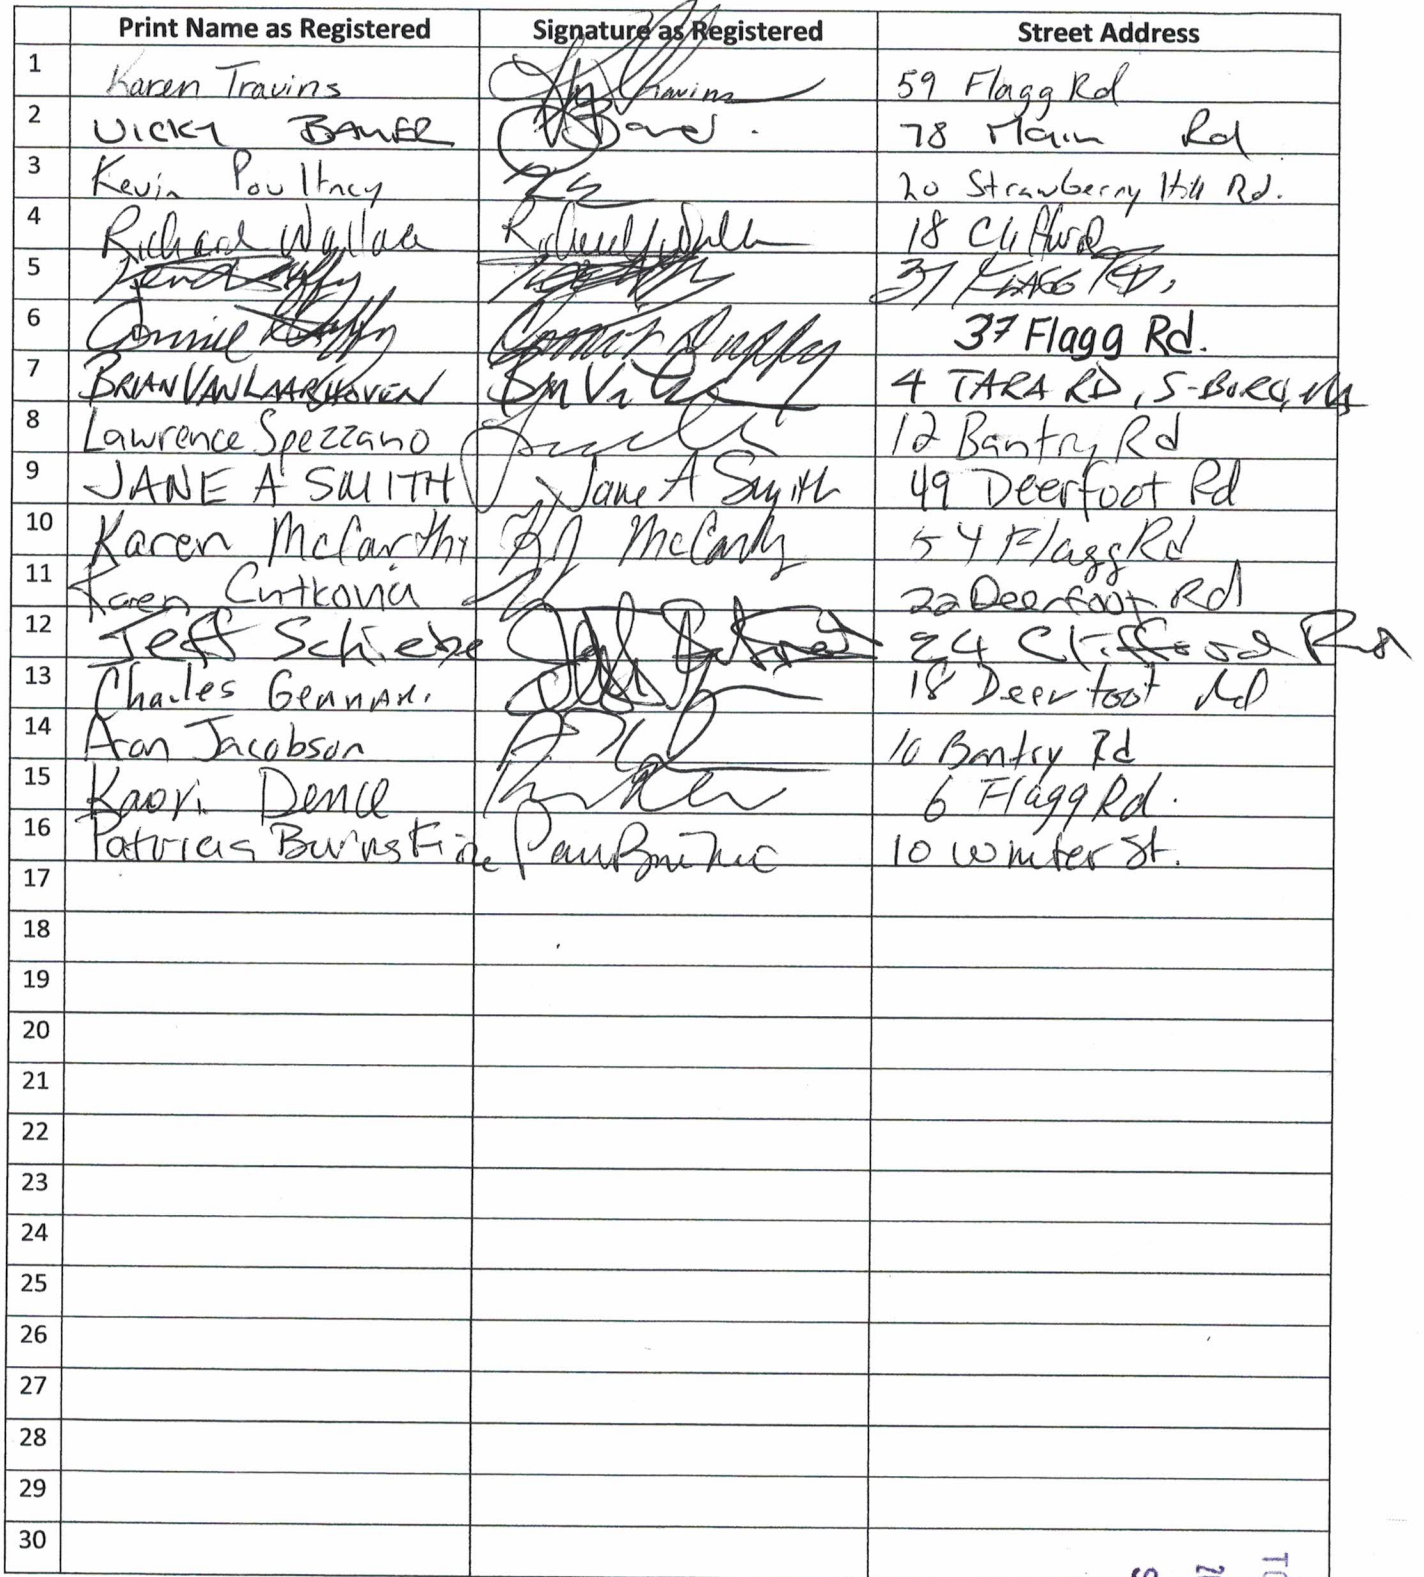 Print Name as Registered Signature as Registered Street Address
1 Karen Travins Travins 59 Flagg Rd
2 VICKY BAUER 78 Main Rd
3 Kevin Poultney 20 Strawberry Hill Rd.
4 Richard Wallace Richard Wallace 18 Clifford
5 37 FLAGG RD,
6 Connie Duffy Connie Duffy 37 Flagg Rd.
7 BRIAN VAN LAARSHOVEN 4 TARA RD, S-BORO, MA
8 Lawrence Spezzano 12 Bantry Rd
9 JANE A SMITH Jane A Smith 49 Deerfoot Rd
10 Karen McCarthy McCarthy 54 Flagg Rd
11 Karen 22 Deerfoot Rd
12 Jeff 24 Clifford Rd
13 Charles Gennari 18 Deerfoot Rd
14 Aron Jacobson 10 Bantry Rd
15 Kaori Dence 6 Flagg Rd.
16 Patricia Burnstine 10 Winter St.
17
18
19
20
21
22
23
24
25
26
27
28
29
30